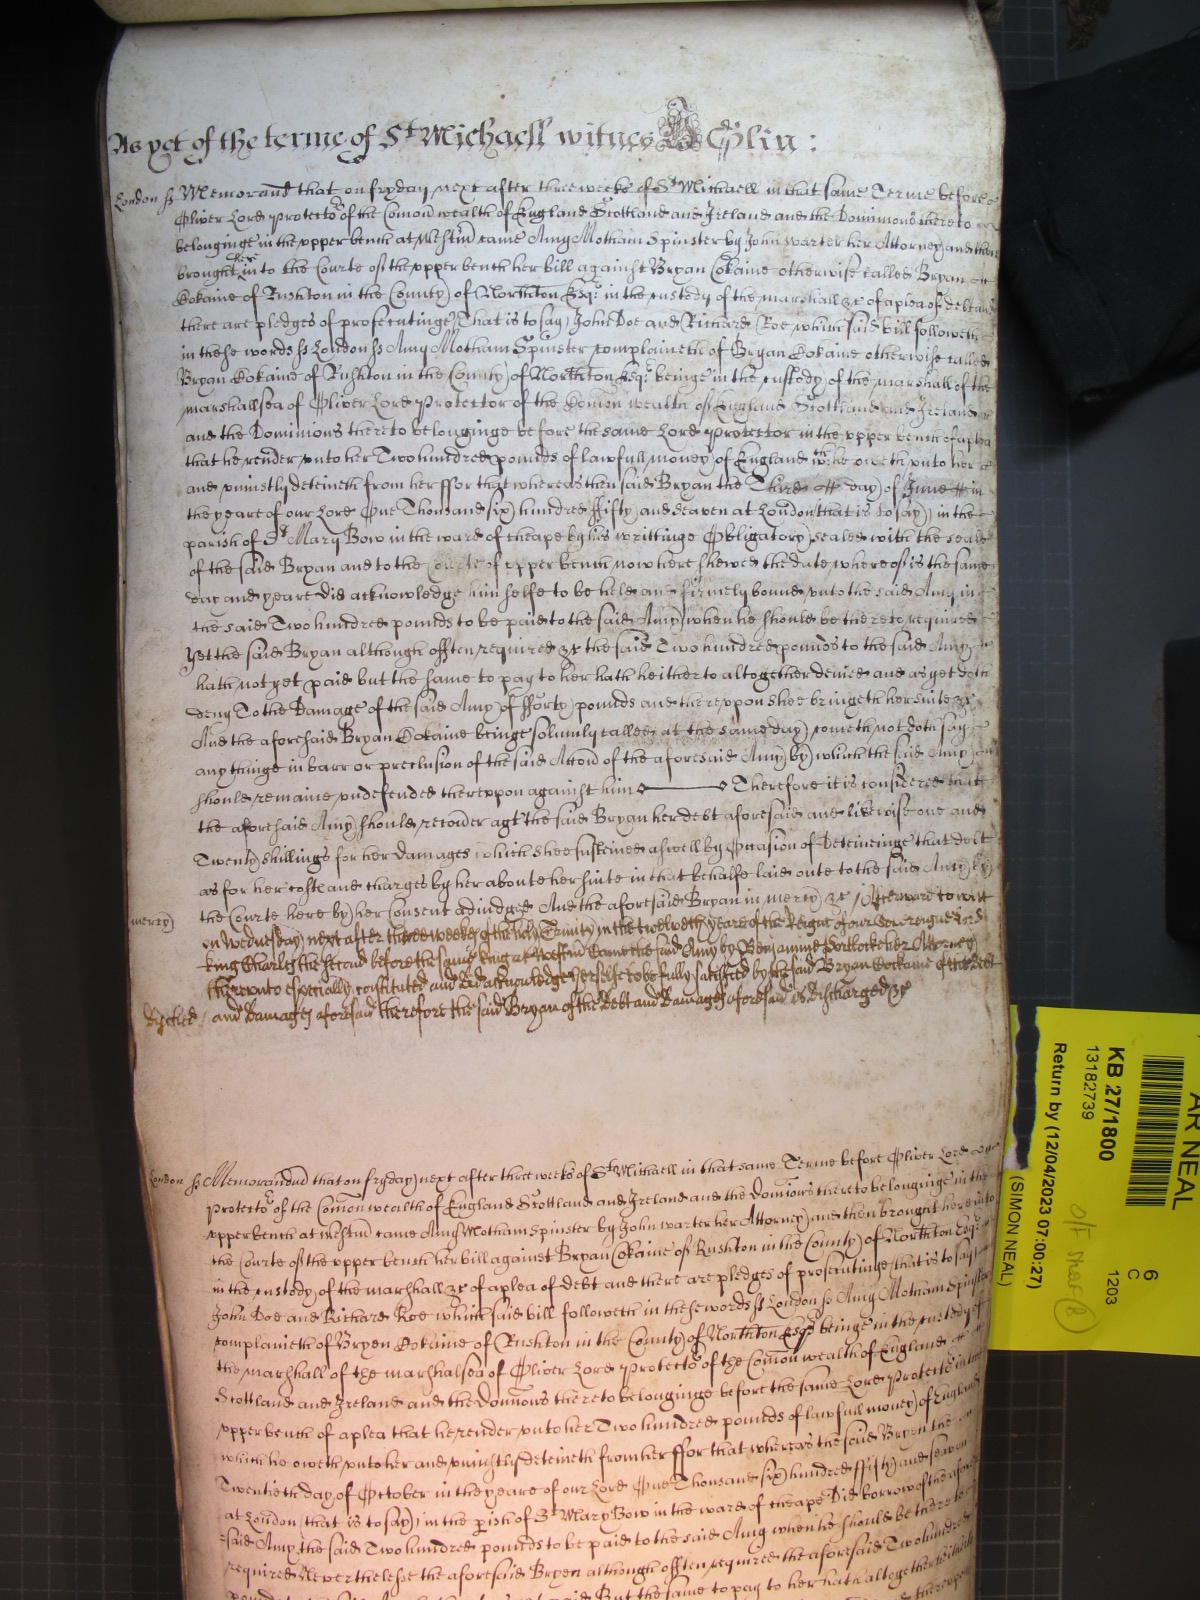 As yet of the terme of St Michaell witnes R Glin:
London ss Memorand that on fryday next after three weeks of St Michaell in that same Terme before
Oliver Lord protector of the Comon wealth of England Scottland and Ireland and the Dominions thereto
belonginge in the vpper bench at westm came Amy Motham Spinster by John warter her Attorney and then
brought here in to the Courte of the vpper bench her bill against Bryan Cokaine otherwise called Bryan
Cokaine of Rushton in the County of Northton Esqr in the custody of the marshall &c of a plea of debt and
there are pledges of prosecutinge That is to say John Doe and Richard Roe which said bill followeth
in these words ss London ss Amy Motham Spinster complaineth of Bryan Cokaine otherwise called
Bryan Cokaine of Rushton in the County of Northton Esqr beinge in the custody of the marshall of the
marshallsea of Oliver Lord Protector of the Comon wealth of England Scottland and Ireland
and the Dominions thereto belonginge before the same Lord protector in the vpper bench of a plea
that he render vnto her Two hundred pounds of lawfull money of England wch he oweth vnto her
and vniustly deteineth from her ffor that whereas the said Bryan the Third day of June in
the yeare of our Lord One Thousand six hundred ffifty and seaven at London that is to say in the
parish of St Mary Bow in the ward of cheape by his writtinge Obligatory sealed with the seale
of the said Bryan and to the Courte of vpper bench now here shewed the date whereof is the same
day and yeare did acknowledge himselfe to be held and firmely bound vnto the said Amy in
the said Two hundred pounds to be paid to the said Amy when he should be thereto required
Yet the said Bryan although often required &c the said Two hundred pounds to the said Amy
hath not yet paid but the same to pay to her hath heitherto altogether denied and as yet doth
deny To the Damage of the said Amy of fforty pounds and therevpon shee bringeth her suite &c
And the aforesaid Bryan Cokaine beinge solemnly called at the same day cometh not doth say
any thinge in barr or preclusion of the said Accon of the aforesaid Amy by which the said Amy
should remaine vndefended therevpon against him Therefore it is considered that
the aforesaid Amy should recover agt the said Bryan her debt aforesaid and likewise one and
Twenty shillings for her damages which shee susteined aswell by Occasion of Deteininge that debt
as for her costs and charges by her aboute her suite in that behalfe laid oute to the said Amy by
mercy the Courte here by her Consent adiudged And the aforesaid Bryan in mercy &c Afterward to witt
on Wednesday next after three weekes of the holy Trinity in the twelveth yeare of the Reigne of our Sovereigne Lord
King Charles the second before the same King at Westm Came the said Amy by Beniamine Portlocke her Attorney
therevnto especially constituted and did acknowledge herselfe to be fully satisfied by the said Bryan Cockaine of the Debt
dischred and damages aforesaid therefore the said Bryan of the Debt and damages aforesaid is discharged &c
London ss Memorandud that on fryday next after three weeks of St Michaell in that same Terme before Oliver Lord
protector of the Comon wealth of England Scottland and Ireland and the Dominions thereto belonginge in the
vpper bench at westm came Amy Motham Spinster by John warter her Attorney and then brought here into
the Courte of the vpper bench her bill against Bryan Cokaine of Rushton in the County of Northton Esqr
in the custody of the marshall &c of a plea of debt and there are pledges of prosecutinge that is to say
John Doe and Richard Roe which said bill followeth in these words ss London ss Amy Motham Spinster
complaineth of Bryan Cokaine of Rushton in the County of Northton Esqr beinge in the custody of
the marshall of the marshalsea of Oliver Lord Protector of the Comon wealth of England
Scottland and Ireland and the Dominions thereto belonginge before the same Lord Protector in the
vpper bench of a plea that he render vnto her Two hundred pounds of lawfull money of England
which he oweth vnto her and vniustly deteineth from her ffor that whereas the said Bryan the
Twentieth day of October in the yeare of our Lord One Thousand six hundred ffifty and seaven
at London that is to say in the parish of St Mary Bow in the ward of cheape Did borrow of the afore
said Amy the said Two hundred pounds to be paid to the said Amy when he should be thereto
required Neverthelesse the aforesaid Bryan although often required the aforesaid Two hundred
paid But the same to pay to her hath altogether
AR NEAL
KB 27/1800
13182739
Return by (12/04/2023 07:00:27)
(SIMON NEAL)
6
C
1203